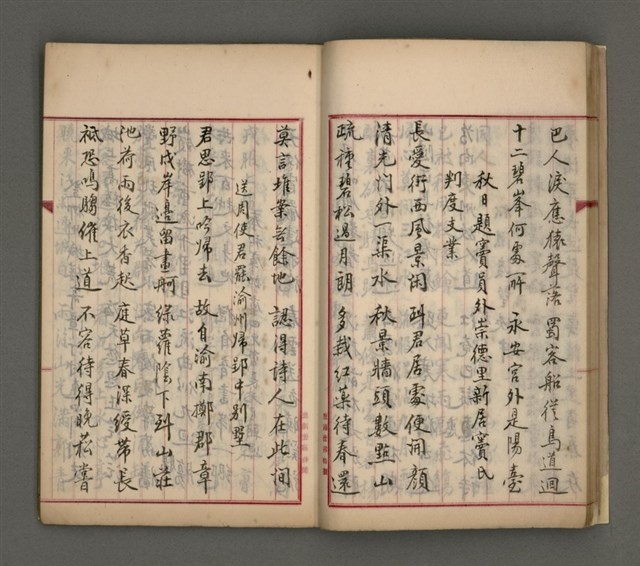 巴人淚應猿聲落 蜀客船從鳥道回
十二碧峯何處所 永安宮外是陽臺
秋日題竇員外崇德里新居竇氏
判度支業
長愛街西風景閑 到君居處便開顏
清光門外一渠水 秋景牆頭數點山
疏種碧松過月朗 多栽紅藥待春還
莫言堆案無餘地 認得詩人在此間
送周使君罷渝州歸郢中別墅
君思郢上吟歸去 故自渝南擲郡章
野戍岸邊留畫舸 綠蘿陰下到山莊
池荷雨後衣香起 庭草春深綬帶長
祗恐鳴騶催上道 不容待得晚菘嘗